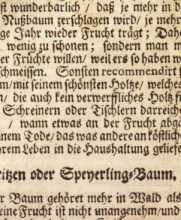 st wunderbarlich / daß je mehr in d
Nußbaum zerschlagen wird / je mehr
ge Jahr wieder Frucht trägt; Dahe
wenig zu schonen; sondern man m
er Früchte willen / weil ers so haben w
schmeissen. Sonsten recommendirt s
m / mit seinem schönsten Holtze / welches
n / die auch kein verwerffliches Holtz f
Schreinern oder Tischlern darreich
/ wann etwas an der Frucht abge
einem Tode / das was andere an köstliche
hrem Leben in die Haushaltung geliefe
ritzen oder Speyerling-Baum.
r Baum gehöret mehr in Wald als
eine Frucht ist nicht unangenehm / und